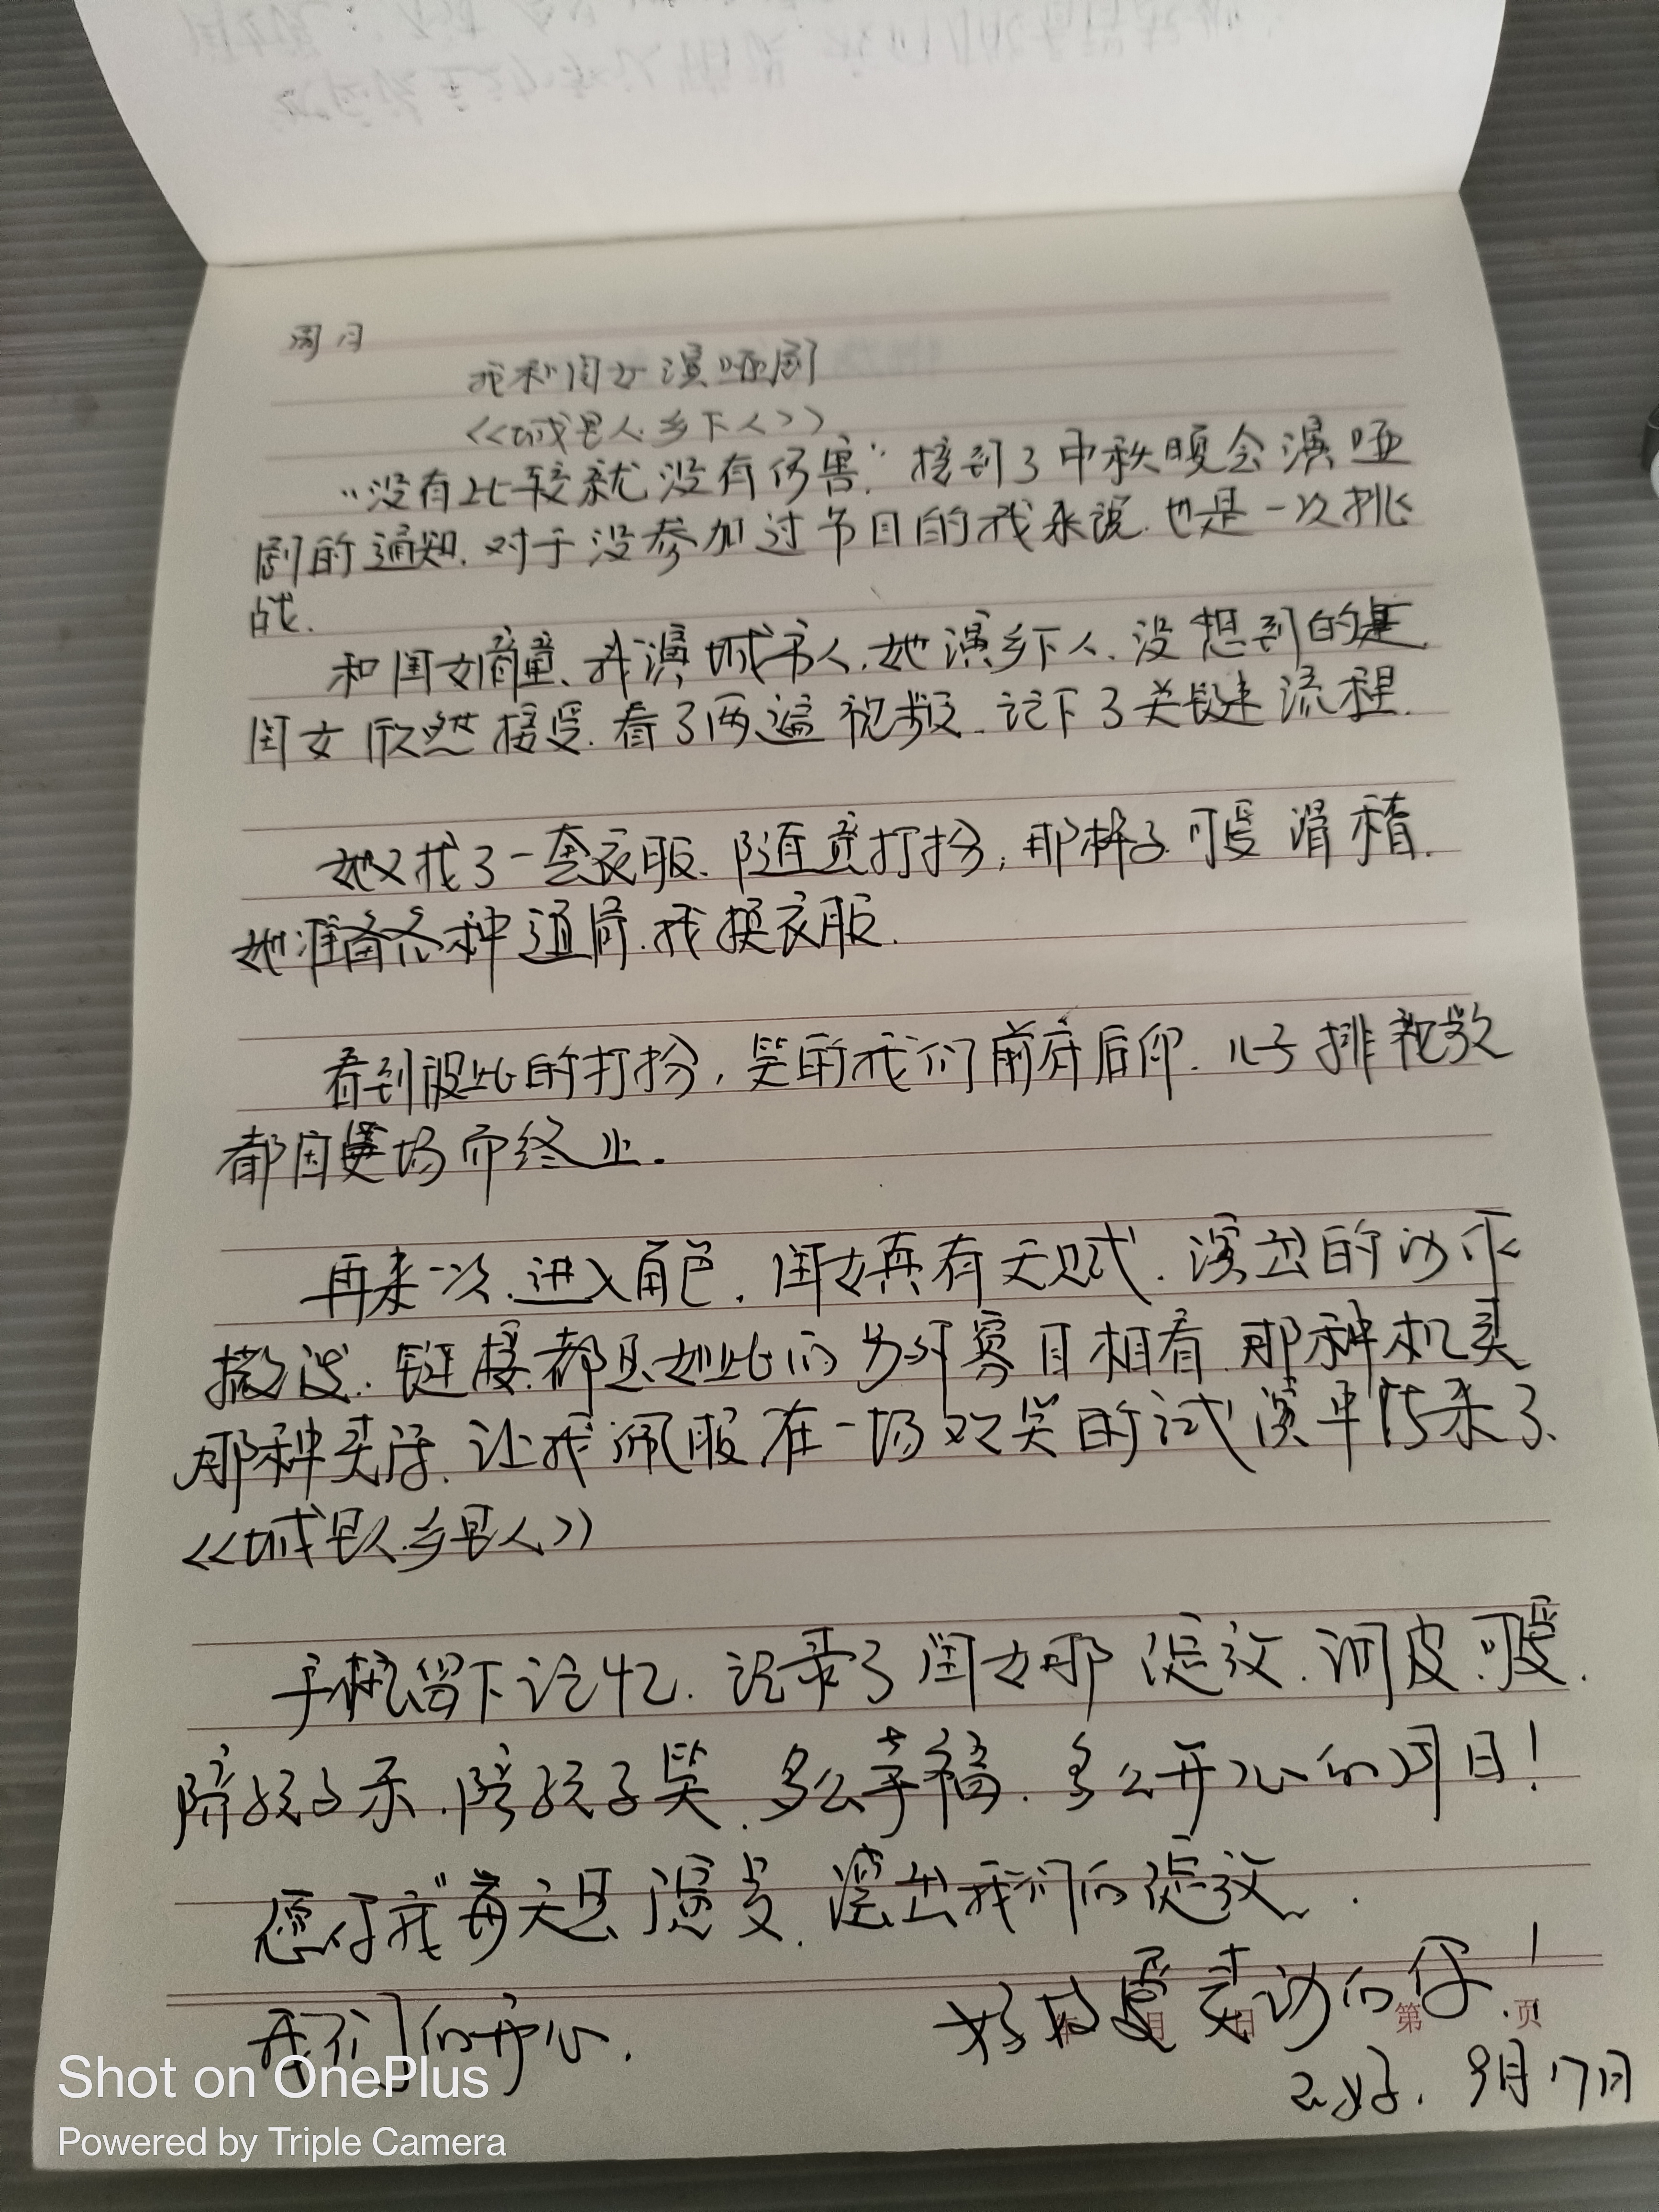 周月
我和闺女演哑剧
<<城里人.乡下人>>
"没有比较就没有伤害." 接到了中秋晚会演哑
剧的通知.对于没参加过节目的我来说.也是一次挑
战.
和闺女商量、我演城市人.她演乡下人.没想到的是
闺女欣然接受.看了两遍视频.记下了关键流程.
她又找了一套衣服.随意打扮,那样子可爱滑稽.
她准备各种道具.我换衣服.
看到彼此的打扮,笑的我们前府后仰.儿子排视频
都因笑场而终止.
再来一次.进入角色.闺女真有天赋.演出的动作
撒泼.链接.都是如此的 另外 寡目相看.那种机灵
那种卖活.让我佩服在一场欢笑的试演中结束了.
<<城里人.乡里人>>
手机留下记忆.记录了闺女那 绽放.调皮.可爱.
陪孩子乐.陪孩子笑.多么幸福.多么开心的 日!
愿你我"每天是 演变.演出我们的绽放.
我们的开心.
好 爱 动的你!
第 页
9月17日
Shot on OnePlus
Powered by Triple Camera